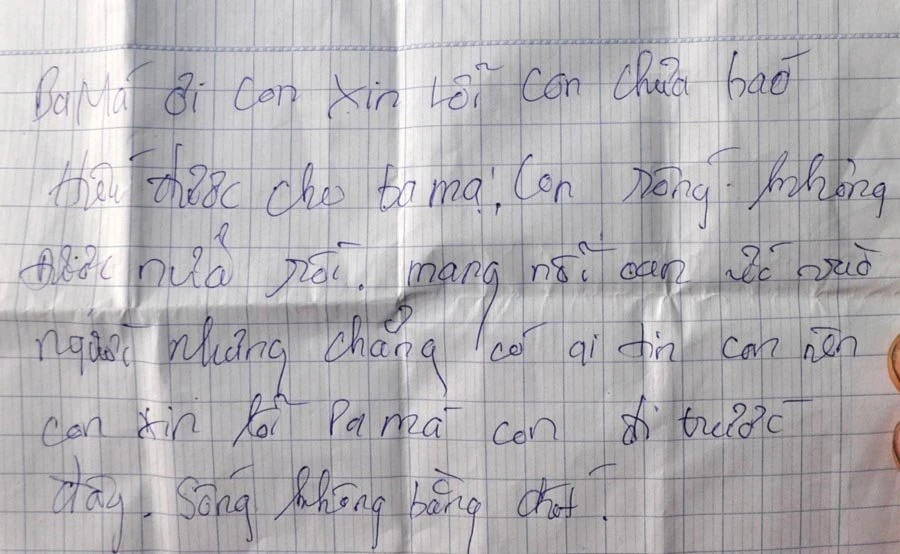 Ba Má ơi con xin lỗi con chưa báo
hiếu được cho ba mạ, Con sống không
được nữa rồi. mang nỗi oan ức vào
người nhưng chẳng có ai tin con nên
con xin lỗi Pa má con đi trước
đây. Sống không bằng chết.